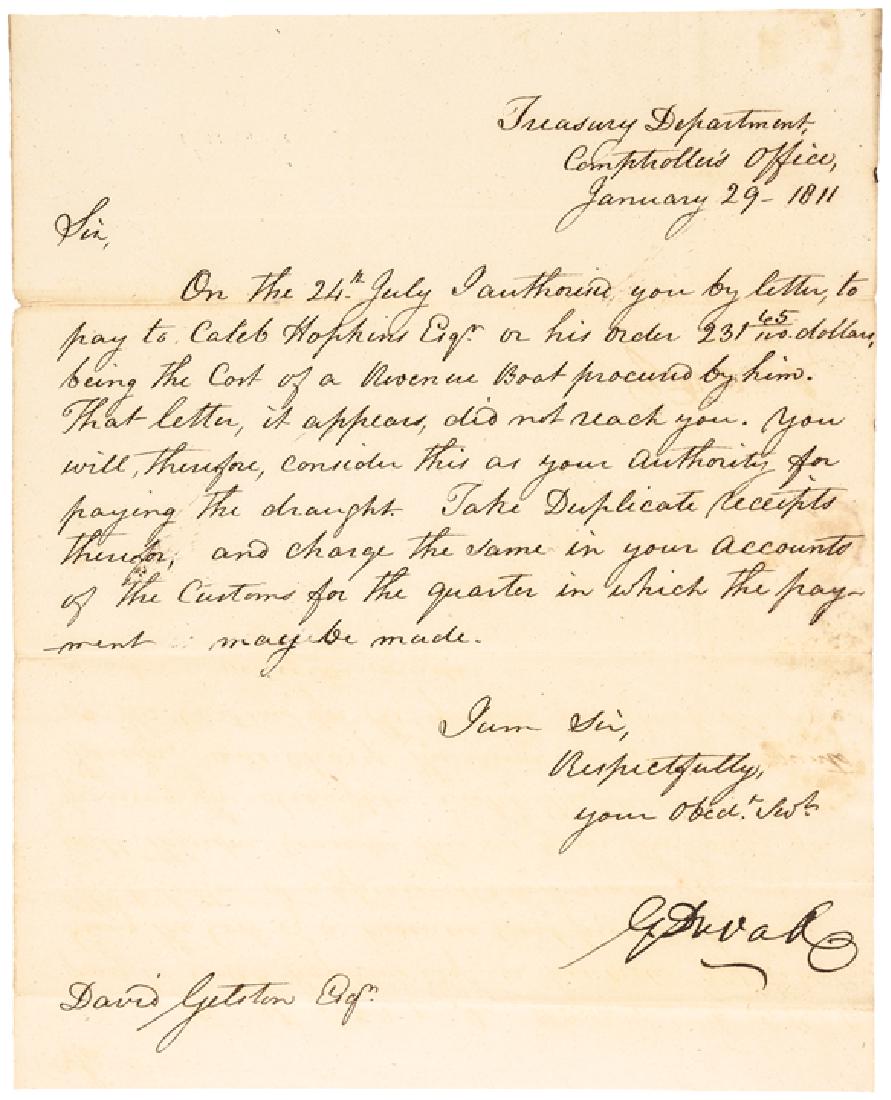 Treasury Department,
Comptroller's Office,
January 29 - 1811
Sir,
On the 24th. July I authorised you by letter, to
pay to Caleb Hopkins Esqr. or his order 231 65/100. dollars,
being the Cost of a Revenue Boat procured by him.
That letter, it appears, did not reach you. You
will, therefore, consider this as your authority for
paying the draught. Take Duplicate receipts
therefor, and charge the same in your Accounts
of the Customs for the quarter in which the pay-
ment may be made.
I am Sir,
Respectfully,
your Obedt. Svt.
G Duval
David Gelston Esqr.